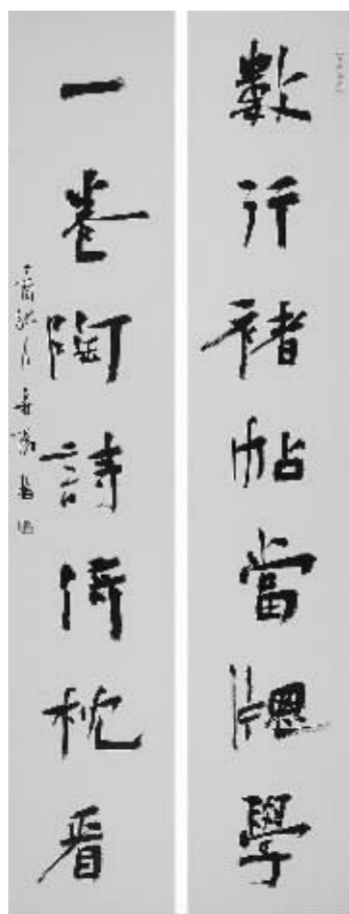 數行褚帖當牕學
一卷陶詩倚枕看